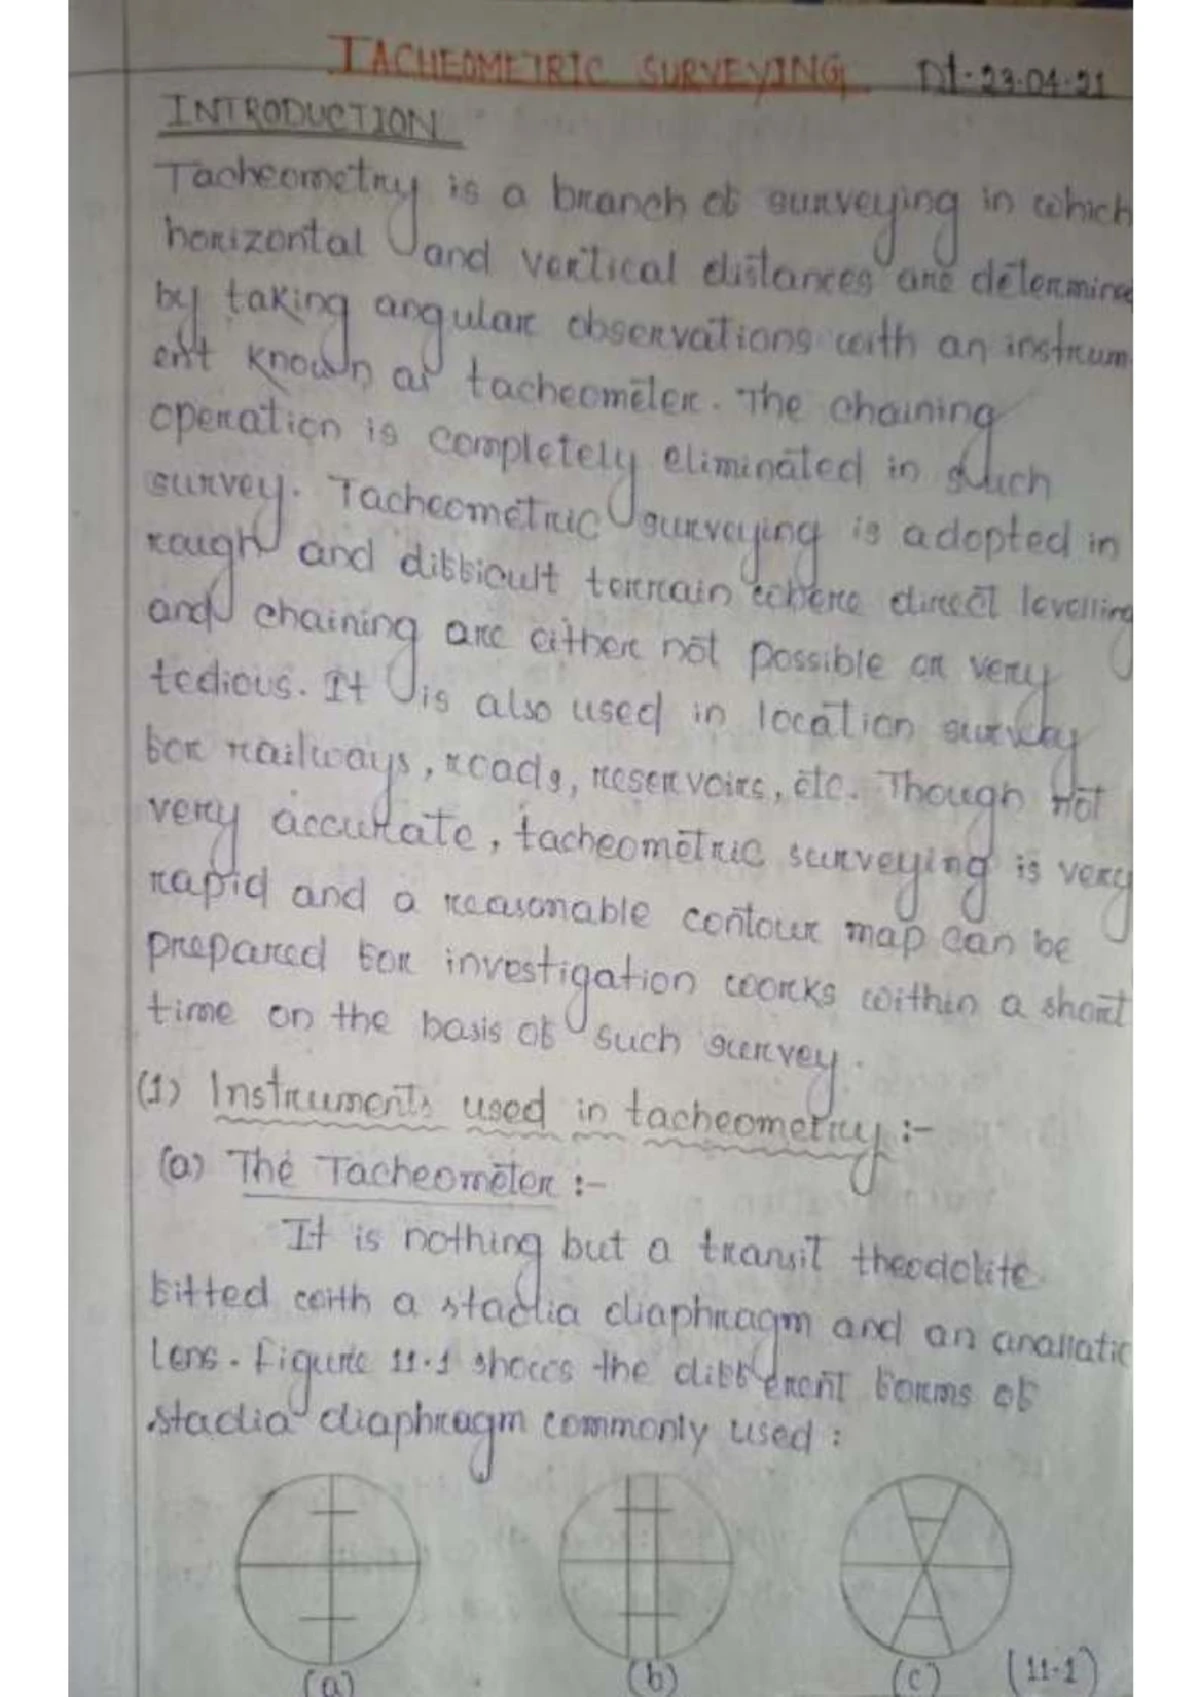 TACHEOMETRIC SURVEYING Dt-23.04.21
INTRODUCTION
Tacheometry is a branch of surveying in which
horizontal and vertical distances are determine
by taking angular observations with an instrum
ent known as tacheometer. The chaining
operation is completely eliminated in such
survey. Tacheometric surveying is adopted in
rough and difficult terrain where direct levelling
and chaining are either not possible or very
tedious. It is also used in location survey
for railways, roads, reservoirs, etc. Though not
very accurate, tacheometric surveying is very
rapid and a reasonable contour map can be
prepared for investigation works within a short
time on the basis of such survey.
(1) Instruments used in tacheometry :-
(a) The Tacheometer :-
It is nothing but a transit theodolite
fitted with a stadia diaphragm and an anallatic
lens. Figure 11.1 shows the different forms of
stadia diaphragm commonly used :
(a) (b) (c) (11-1)